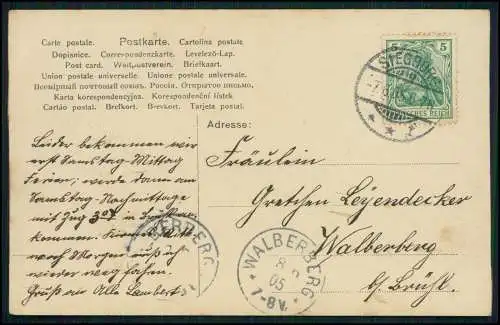 Carte postale. Postkarte. Cartolina postale.
Dopisnice. Correvonczenkarte. Levelező-Lap.
Post card. Weltpostverein. Briefkaart.
Union postale universelle. Unione postale universale.
Всемірный почтовый союзъ. Россія. Открытое письмо.
Karta korespondencyjna. Korespondenční lístek.
Cartão postal. Brefkort. Brevkort. Tarjeta postal.
5 5
SIEGBURG
DEUTSCHES REICH
Adresse:
Leider bekommen wir
erst Samstag-Mittag
Ferien; werde dann am
Samstag-Nachmittage
mit Zug 304 in
kommen.
noch Morgen muß ich
wieder weg fahren.
Gruß an Alle Lambert
Fräulein
Gretchen Leyendecker
Walberberg
b/ Brühl.
WALBERBERG
8
05